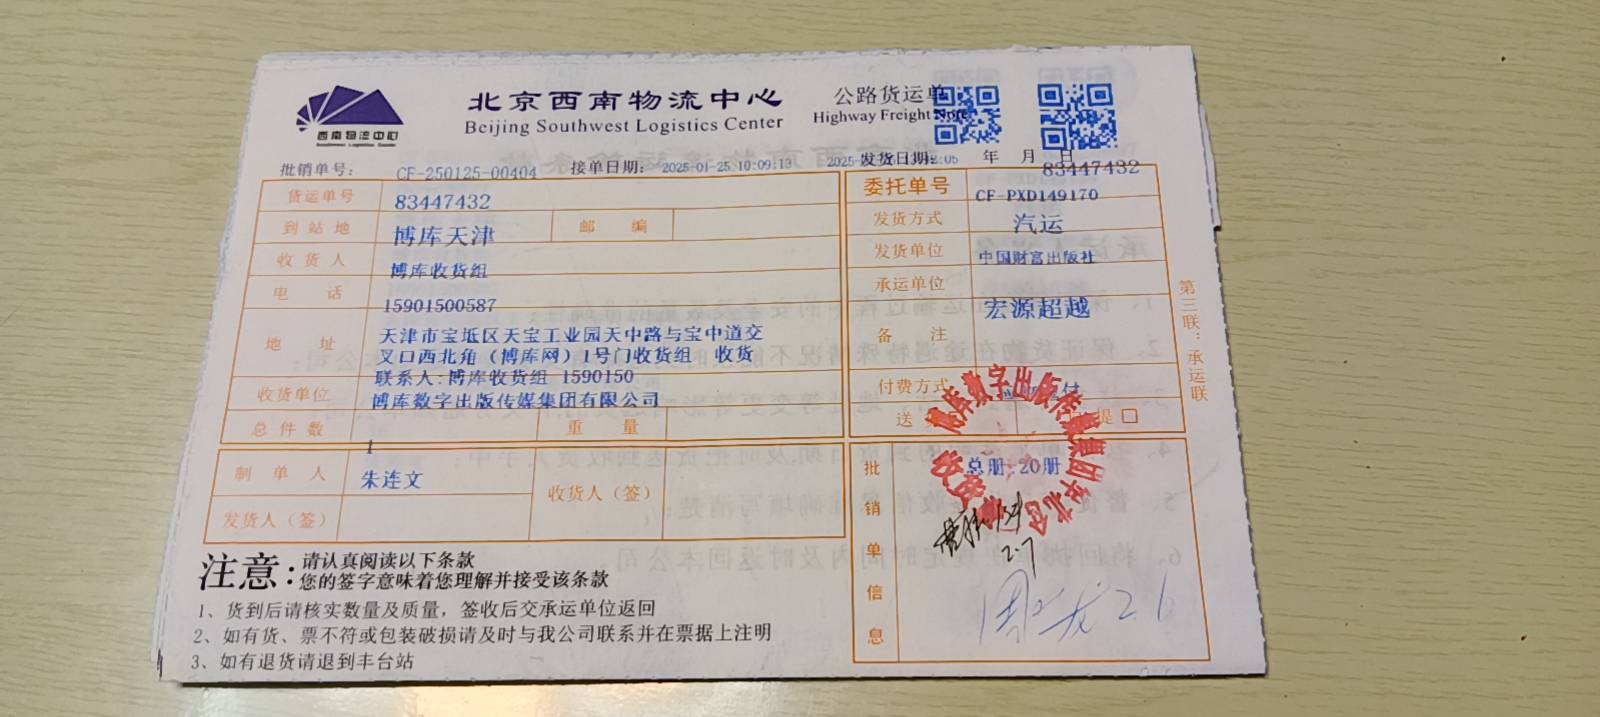 北京西南物流中心
Beijing Southwest Logistics Center
公路货运单
Highway Freight Note
西南物流中心
Southwest Logistics Center
批销单号: CF-250125-00404 接单日期: 2025-01-25 10:09:13 发货日期: 年 月 日
83447432
货运单号 83447432
到站地 博库天津 邮编
收货人 博库收货组
电话 15901500587
地址 天津市宝坻区天宝工业园天中路与宝中道交
叉口西北角(博库网)1号门收货组 收货
联系人:博库收货组 1590150
收货单位 博库数字出版传媒集团有限公司
总件数 1 重量
制单人 朱连文 收货人(签)
发货人(签)
委托单号 CF-PXD149170
发货方式 汽运
发货单位 中国财富出版社
承运单位 宏源超越
备注
付费方式 付
送 提 □
批销单信息 总册:20册
博库数字出版传媒集团华北仓
收货
2.7
2.6
第三联:承运联
注意: 请认真阅读以下条款
您的签字意味着您理解并接受该条款
1、货到后请核实数量及质量，签收后交承运单位返回
2、如有货、票不符或包装破损请及时与我公司联系并在票据上注明
3、如有退货请退到丰台站